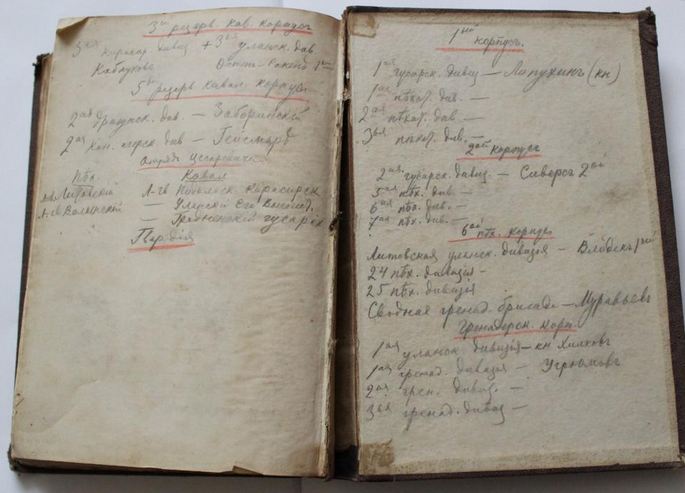 3ій резерв. кав. корпусъ
3ья Кирасир. дивиз + 3ья уланск. див
Каблукова
5й резерв кавал. корпусъ.
2ая Драгунск. див. – Заборинскій
2ая Кон. егерск див – Гейсмаръ
Отрядъ Цесаревича
Пѣх. Кавал
Л-гв Литовскій Л-гв Подольск. Кирасирск
Л-гв Волынскій — Уланскій Его Высоч.
— Гродненскій гусарск
Гвардія
1ый корпусъ.
1ая гусарск. дивиз – Лопухинъ (кн)
1ая пѣхот. див. —
2ая пѣхот. див. —
3ья пѣхот. див. —
2ой корпусъ
2ая гусарск. дивиз. – Сиверсъ 2ой
5ая пѣх. див —
6ая пѣх. див. —
7ая пѣх. див. —
6ой пѣх. корпусъ
Литовская уланск. дивизія – Влодекъ 1ый
24 пѣх. дивизія –
25 пѣх. дивизія
Сводная гренад. бригада – Муравьевъ
Гренадерск. корп.
1ая уланск. дивизія – кн Хилковъ
1ая гренад. дивизія – Угрюмовъ
2ая грен. дивиз. —
3ья гренад. дивиз —